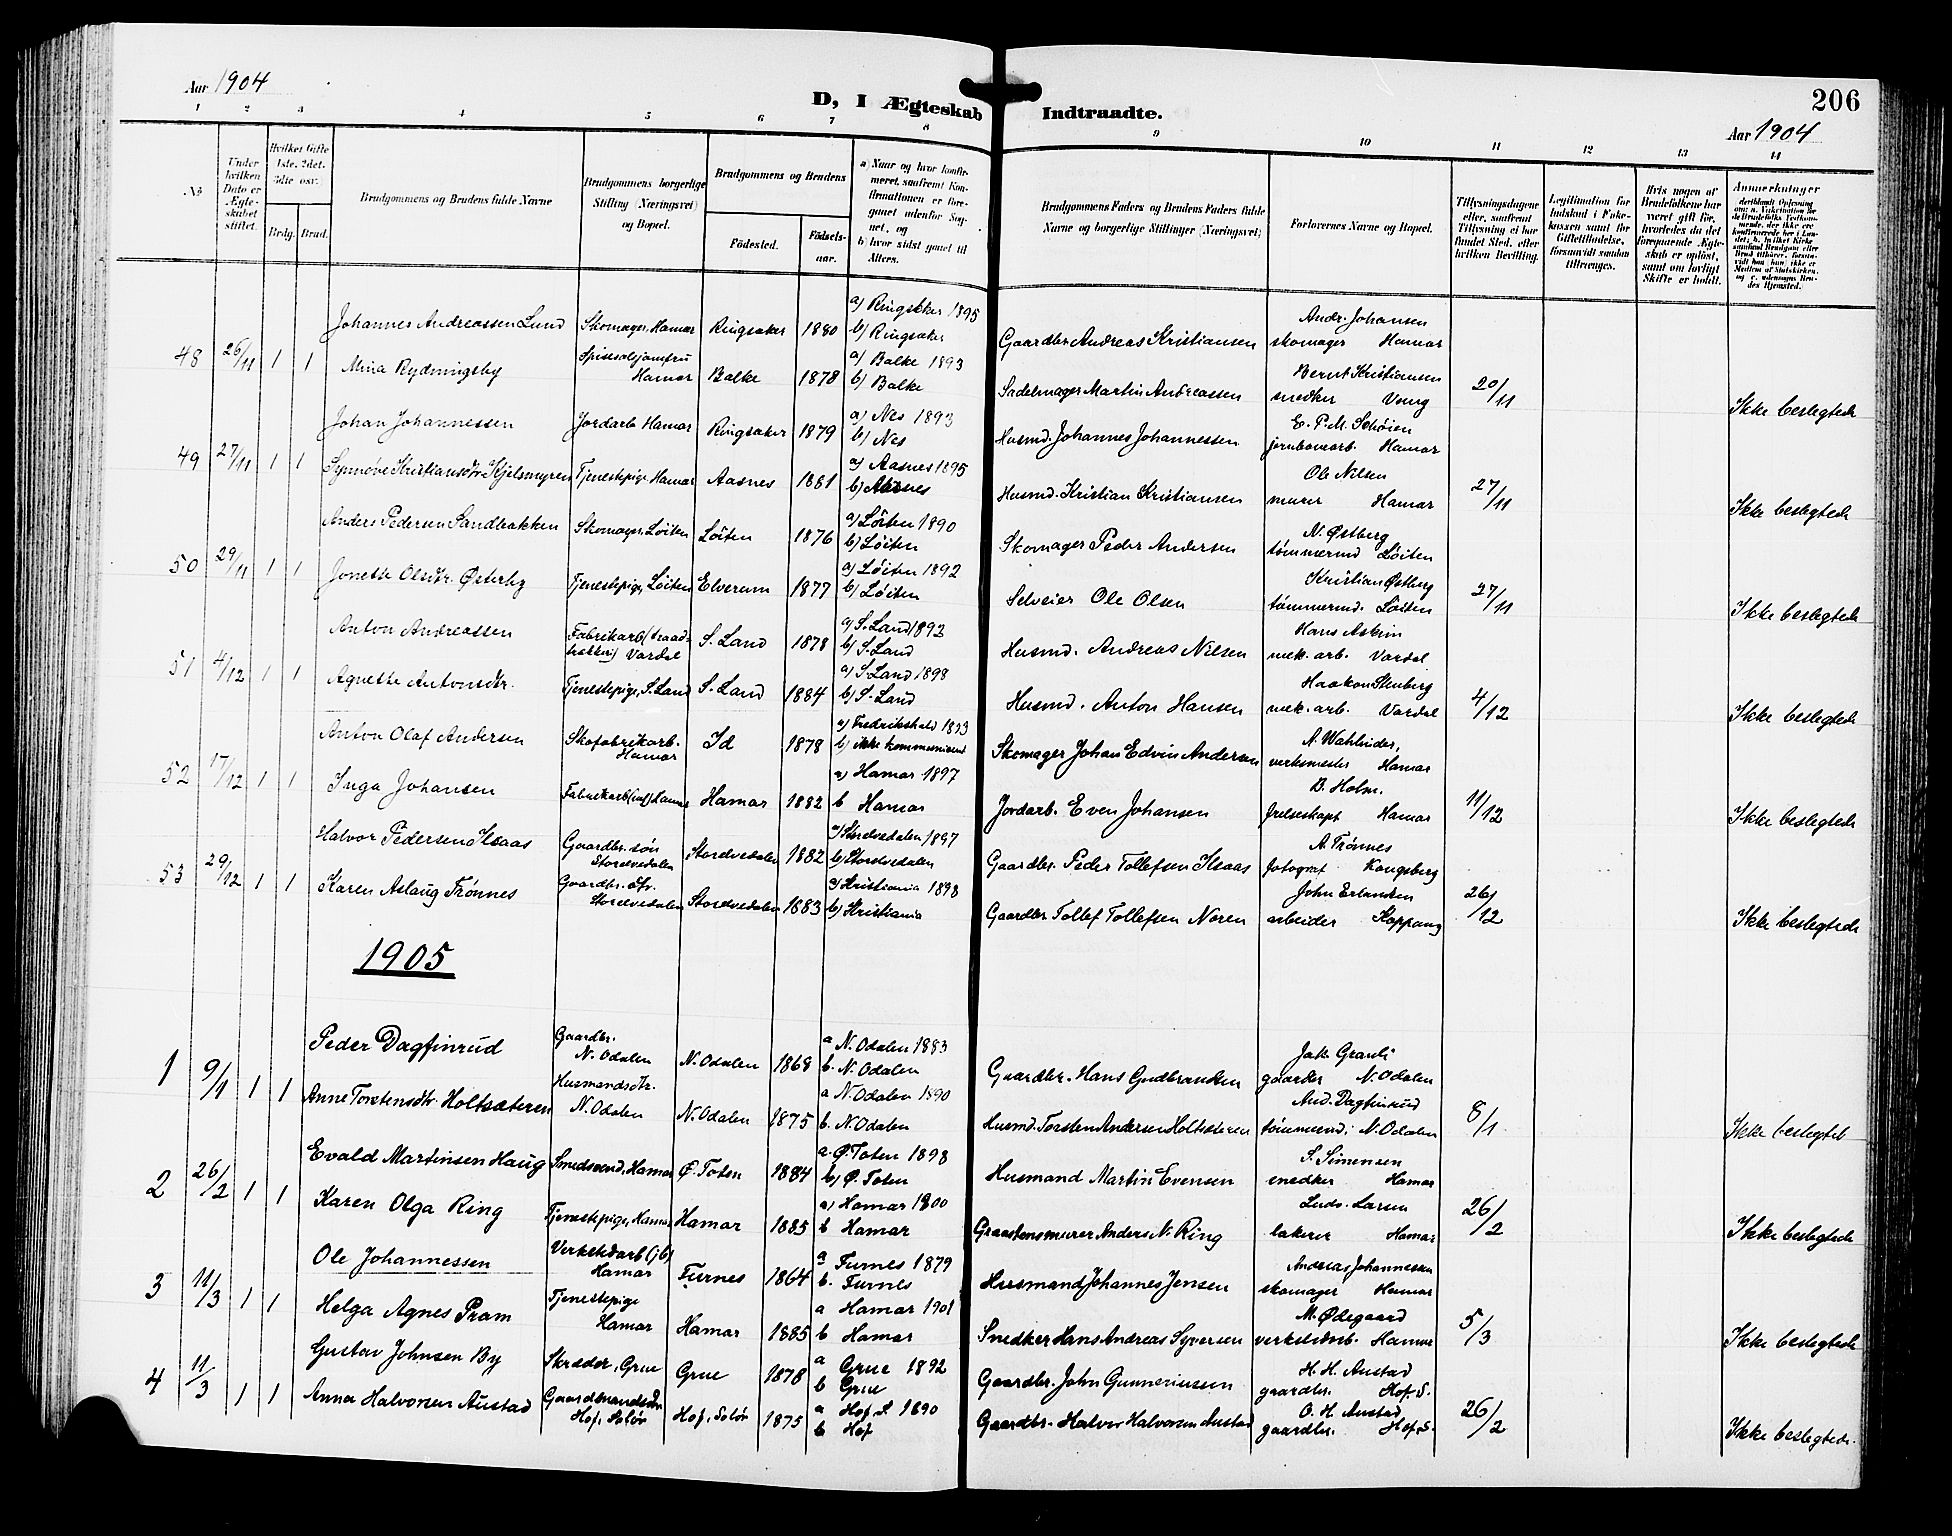 Aar 1904
D, I Ægteskab Indtraadte.
206
Aar 1904
1 2 3 4 5 6 7 8 9 10 11 12 13 14
No
Under hvilken Dato er Ægteskabet stiftet.
Hvilket Gifte 1ste, 2det, 3dte osv.
Brdg. Brud.
Brudgommens og Brudens fulde Navne
Brudgommens borgerlige Stilling (Næringsvei) og Bopæl.
Brudgommens og Brudens
Fødested.
Fødsels-aar.
a) Naar og hvor konfirmeret, saafremt Konfirmationen er foregaaet udenfor Sognet, og
b) hvor sidst gaaet til Alters.
Brudgommens Faders og Brudens Faders fulde Navne og borgerlige Stillinger (Næringsvei)
Forlovernes Navne og Bopæl.
Tillysningsdagene eller, saafremt Tillysning ei har fundet Sted, efter hvilken Bevilling.
Legitimation for Indskud i Enkekassen samt for Giftetilladelse, forsaavidt saadan tiltrænges.
Hvis nogen af Brudefolkene har været gift før, hvorledes da det foregaaende Ægteskab er opløst, samt om lovligt Skifte er holdt.
Anmerkninger
Johannes Andreassen Lund Skomager, Hamar Ringsaker 1880 a) Ringsaker 1895 b) Ringsaker Gaardbr Andreas Kristiansen Andr. Johansen skomager Hamar
48 26/11 1 1 Mina Rydningsby Spisesaljomfru Hamar Balke 1878 a) Balke 1893 b) Balke Sadelmager Martin Andreassen Bernt Kristiansen snedker Vang 20/11 Ikke beslegtede
Johan Johannessen Jordarb Hamar Ringsaker 1879 a) Nes 1893 b) Nes Husmd. Johannes Johannessen E. P. M. Schøien jernbanearb. Hamar
49 27/11 1 1 Synnøve Kristiansdtr Kjelsmyren Tjenestepige Hamar Aasnes 1881 a) Aasnes 1895 b) Aasnes Husmd. Kristian Kristiansen Ole Nilsen murer Hamar 27/11 Ikke beslegtede
Anders Pedersen Sandbakken Skomager, Løiten Løiten 1876 a) Løiten 1890 b) Løiten Skomager Peder Andersen N. Østberg tømmermd Løiten
50 29/11 1 1 Jonette Olsdtr. Østerby Tjenestepige, Løiten Elverum 1877 a) Løiten 1892 b) Løiten Selveier Ole Olsen Kristian Østberg tømmermd. Løiten 27/11 Ikke beslegtede
Anton Andreassen Fabrikarb (traadtrækkeri) Vardal S. Land 1878 a) S. Land 1892 b) S. Land Husmd. Andreas Nilsen Hans Askim mek. arb. Vardal
51 4/12 1 1 Agnette Antonsdtr. Tjenestepige, S. Land S. Land 1884 a) S. Land 1898 b) S. Land Husmd. Anton Hansen Haakon Stenberg mek. arb. Vardal 4/12 Ikke beslegtede
Anton Olaf Andersen Skofabrikarb. Hamar Id 1878 a) Fredrikshald 1893 b) ikke kommunicerd Skomager Johan Edvin Andersen A. Wahlnider, verksmester Hamar
52 17/12 1 1 Inga Johansen Hamar Hamar 1882 a) Hamar 1897 b Hamar Jordarb. Even Johansen B. Holm. frelseskapt Hamar 11/12 Ikke beslegtede
Halvor Pedersen Ilsaas Gaardbr. søn Storelvedalen Storelvedalen 1882 a) Storelvedalen 1897 b) Storelvedalen Gaardbr. Peder Tollefsen Ilsaas A. Trønnes fotograf Kongsberg
53 29/12 1 1 Karen Aslaug Trønnes Gaardbr. dtr. Storelvedalen Storelvedalen 1883 a) Kristiania 1898 b) Kristiania Gaardbr Tollef Tollefsen Noren John Erlandsen arbeider Koppang 26/12 Ikke beslegtede
1905
Peder Dagfinrud Gaardbr. N. Odalen N. Odalen 1868 a N. Odalen 1883 b. N. Odalen Gaardbr. Hans Gudbrandsen Jak. Grasli gaardbr N. Odalen
1 9/1 1 1 Anne Torstensdtr. Holtsæteren Husmandsdtr. N. Odalen N. Odalen 1875 a N. Odalen 1890 b. N. Odalen Husmd. Torsten Andersen Holtsæteren And. Dagfinrud tømmermd; N. Odalen 8/1 Ikke beslegtet
Evald Martinsen Haug Smedsvend, Hamar Ø. Toten 1884 a. Ø. Toten 1898 b) Ø. Toten Husmand Martin Evensen S. Simensen snedker Hamar
2 26/2 1 1 Karen Olga Ring Tjenestepige, Hamar Hamar 1885 a) Hamar 1800 b Hamar Graastensmurer Anders N. Ring Ludv. Larsen lakerer Hamar 26/2 Ikke beslegtede
Ole Johannessen Verkstedarb (jb) Hamar Furnes 1864 a Furnes 1879 b. Furnes Husmand Johannes Jensen Andreas Johannessen skomager Hamar
3 11/3 1 1 Helga Agnes Pram Tjenestepige Hamar Hamar 1885 a Hamar 1901 b Hamar Snedker Hans Andreas Syversen M. Ødegaard verkstedarb. Hamar 5/3 Ikke beslegtede
Gustav Johnsen By Skræder, Grue Grue 1878 a Grue 1892 b Grue Gaardbr. John Gunneriussen H. H. Austad gaardbr. Hof. S.
4 11/3 1 1 Anna Halvorsen Austad Gaardmandsdtr Hof, Solør Hof, Solør 1875 a Hof, S. 1890 b Hof Gaardbr. Halvor Halvorsen Austad O. H. Austad gaardbr. Hof, S. 26/2 Ikke beslegtede.